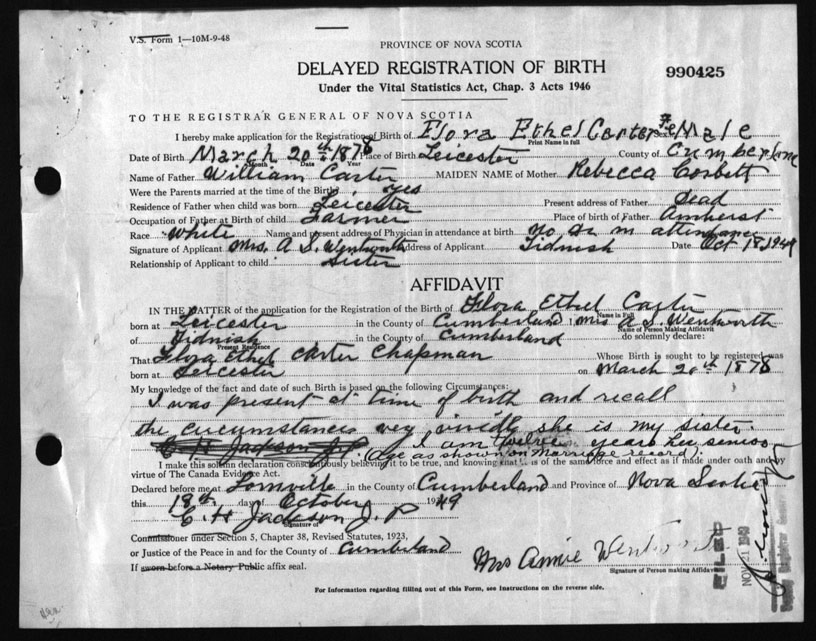 V.S. Form 1—10M-9-48
PROVINCE OF NOVA SCOTIA
DELAYED REGISTRATION OF BIRTH
990425
Under the Vital Statistics Act, Chap. 3 Acts 1946
TO THE REGISTRAR GENERAL OF NOVA SCOTIA
I hereby make application for the Registration of Birth of Flora Ethel Carter Sex FeMale
Print Name in full
Date of Birth March 20th 1878 Place of Birth Leicester County of Cumberland
Month Date Year
Name of Father William Carter MAIDEN NAME of Mother Rebecca Corbett
Were the Parents married at the time of the Birth yes
Residence of Father when child was born Leicester Present address of Father Dead
Occupation of Father at Birth of child Farmer Place of birth of Father Amherst
Race White Name of Physician in attendance at birth no Dr in attendance
Signature of Applicant Mrs. A S. Wentworth Address of Applicant Tidnish Date Oct 18, 1949
Relationship of Applicant to child Sister
AFFIDAVIT
IN THE MATTER of the application for the Registration of the Birth of Flora Ethel Carter
Name in Full
born at Leicester in the County of Cumberland I Mrs A S. Wentworth
Name of Person Making Affidavit
of Tidnish in the County of Cumberland do solemnly declare:
Present Residence
That Flora Ethel Carter Chapman Whose Birth is sought to be registered was
born at Leicester on March 20th 1878
My knowledge of the fact and date of such Birth is based on the following Circumstances:
I was present at time of birth and recall
the circumstances vey vividly she is my sister.
C H Jackson J.P. I am twelve years her senior
(age as shown on Marriage record).
I make this solemn declaration conscientiously believing it to be true, and knowing that it is of the same force and effect as if made under oath and by
virtue of The Canada Evidence Act.
Declared before me at Lornville in the County of Cumberland and Province of Nova Scotia
this 18th day of October 1949
C. H Jackson J. P
Signature of
Commissioner under Section 5, Chapter 38, Revised Statutes, 1923,
or Justice of the Peace in and for the County of Cumberland
Mrs Annie Wentworth
If sworn before a Notary Public affix seal.
Signature of Person making Affidavit
FILED
NOV 21 1949
Deputy Registrar General
For Information regarding filling out of this Form, see Instructions on the reverse side.